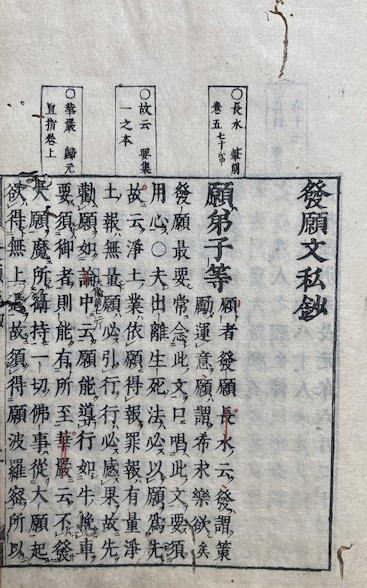 發願文私鈔
願弟子等
願者發願長水云發謂策
勵運意願謂希求樂欲矣
發願最要常念此文口唱此文要須
用心〇夫出離生死法必以願為先
故云淨土業依願得報罪報有量淨
土報無量願必引行行必感果故先
勸願如論中云願能導行如牛挽車
要須御者則能有所至華嚴云不發
大願魔所攝持一切佛事從大願起
欲得無上故須得願波羅密所以
〇長水
卷五
〇故云 要集
一之本
〇華嚴 歸元
直指卷上